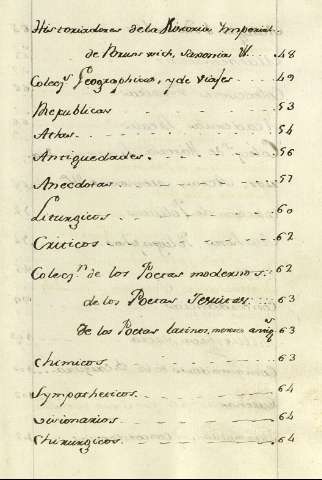 Historiadores de la Historia Imperial
de Brunswich, Saxonia &. . . . 48
Colecs Geographicas, y de viajes . . . . 49
Republicas . . . . 53
Atlas . . . . 54
Antiguedades . . . . 56
Anecdotas . . . . 57
Liturgicos . . . . 60
Criticos . . . . 62
Colecn de los Poetas modernos . . 62
de los Poetas Jesuitas . . 63
de los Poetas latinos, menores antiqs 63
Chimicos . . . . 63
Sympatheticos . . . . 64
Visionarios . . . . 64
Chirurgicos . . . . 64